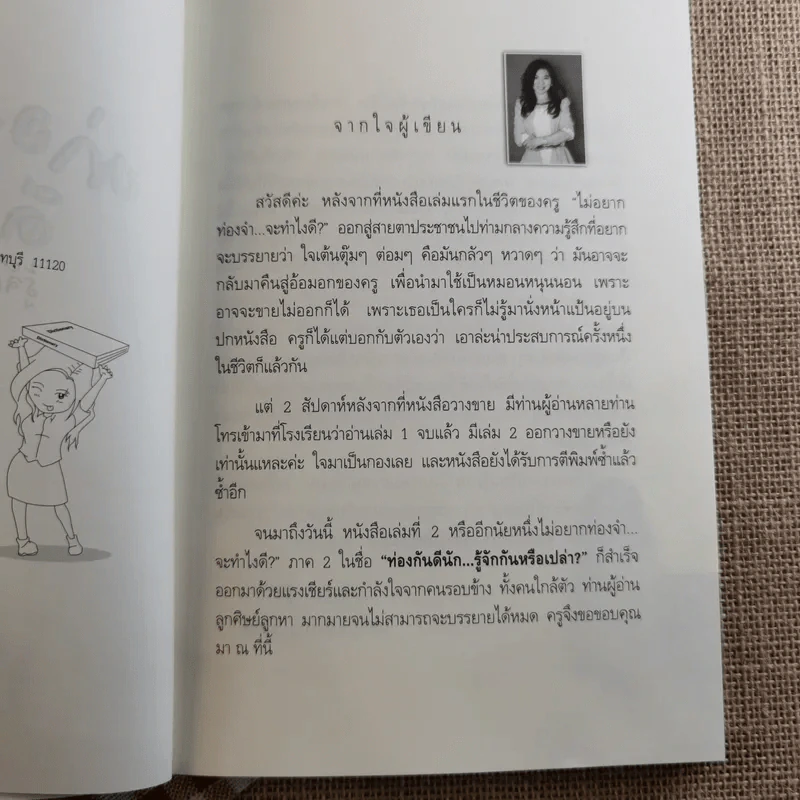 ทบุรี 11120
จากใจผู้เขียน
สวัสดีค่ะ หลังจากที่หนังสือเล่มแรกในชีวิตของครู "ไม่อยาก
ท่องจำ...จะทำไงดี?" ออกสู่สายตาประชาชนไปท่ามกลางความรู้สึกที่อยาก
จะบรรยายว่า ใจเต้นตุ๊มๆ ต่อมๆ คือมันกลัวๆ หวาดๆ ว่า มันอาจจะ
กลับมาคืนสู่อ้อมอกของครู เพื่อนำมาใช้เป็นหมอนหนุนนอน เพราะ
อาจจะขายไม่ออกก็ได้ เพราะเธอเป็นใครก็ไม่รู้มานั่งหน้าแป้นอยู่บน
ปกหนังสือ ครูก็ได้แต่บอกกับตัวเองว่า เอาล่ะน่าประสบการณ์ครั้งหนึ่ง
ในชีวิตก็แล้วกัน
แต่ 2 สัปดาห์หลังจากที่หนังสือวางขาย มีท่านผู้อ่านหลายท่าน
โทรเข้ามาที่โรงเรียนว่าอ่านเล่ม 1 จบแล้ว มีเล่ม 2 ออกวางขายหรือยัง
เท่านั้นแหละค่ะ ใจมาเป็นกองเลย และหนังสือยังได้รับการตีพิมพ์ซ้ำแล้ว
ซ้ำอีก
จนมาถึงวันนี้ หนังสือเล่มที่ 2 หรืออีกนัยหนึ่งไม่อยากท่องจำ...
จะทำไงดี?" ภาค 2 ในชื่อ "ท่องกันดีนัก...รู้จักกันหรือเปล่า?" ก็สำเร็จ
ออกมาด้วยแรงเชียร์และกำลังใจจากคนรอบข้าง ทั้งคนใกล้ตัว ท่านผู้อ่าน
ลูกศิษย์ลูกหา มากมายจนไม่สามารถจะบรรยายได้หมด ครูจึงขอขอบคุณ
มา ณ ที่นี้